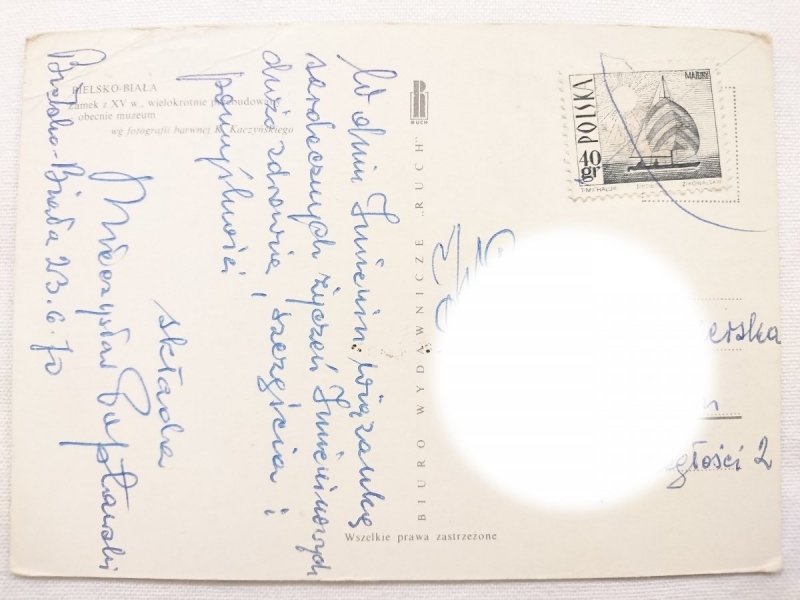 BIELSKO-BIAŁA
Zamek z XV w., wielokrotnie przebudowany
obecnie muzeum
wg fotografii barwnej K. Kaczyńskiego
W dniu Imienin wiązankę
serdecznych życzeń Imieninowych
dużo zdrowia, szczęścia i
pomyślności
składa
Mieczysław Popławski
Bielsko-Biała 23.6.70
BIURO WYDAWNICZE „RUCH"
RUCH
Wszelkie prawa zastrzeżone
POLSKA
40 gr
MAZURY
T. MICHALUK
erska
głości 2